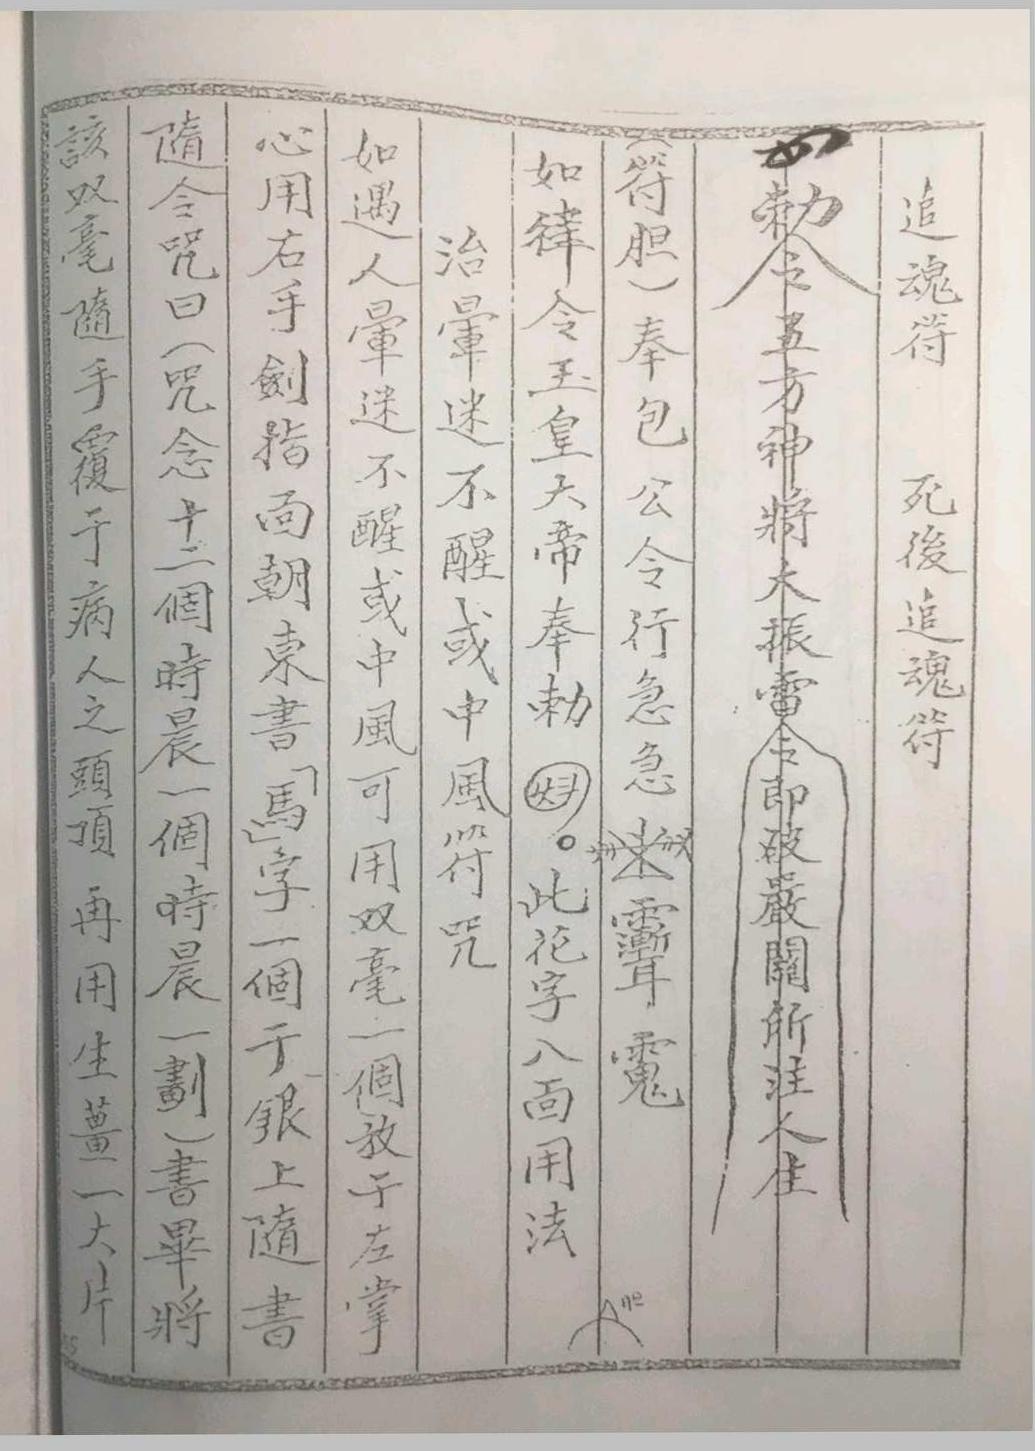 追魂符 死後追魂符
勅令五方神將大振雷令即破嚴關所注人生
(符胆)奉包公令行急急
如律令玉皇大帝奉勅 。此花字八面用法
治暈迷不醒或中風符咒
如遇人暈迷不醒或中風可用双毫一個放于左掌
心用右手劍指面朝東書「馬」字一個于銀上隨書
隨令咒曰(咒念十二個時晨一個時晨一劃)書畢將
該双毫隨手覆于病人之頭頂再用生薑一大片